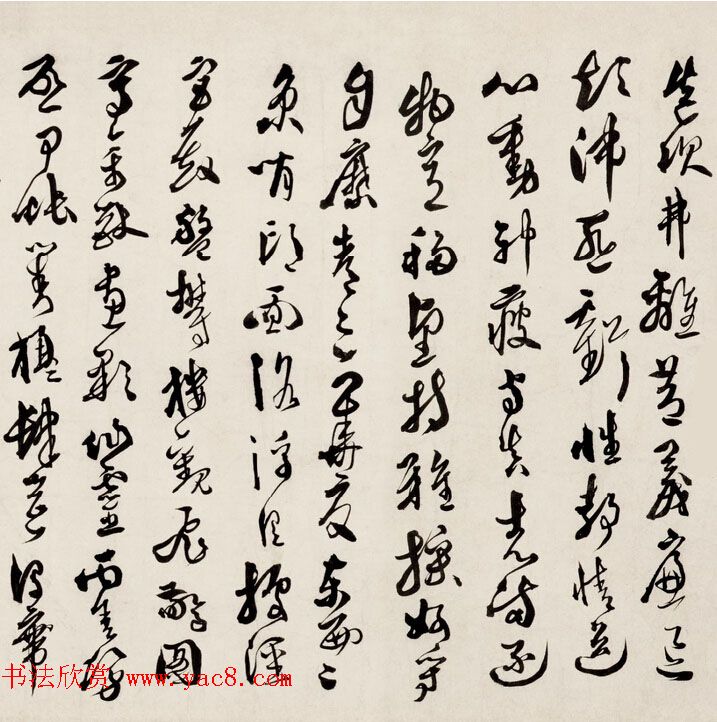 造次弗離節義廉退
顛沛匪虧性靜情逸
心動神疲守真志滿逐
物意移堅持雅操好爵
自縻都邑華夏東西二
京背邙面洛浮渭據涇
宮殿盤鬱樓觀飛驚圖
寫禽獸畫彩仙靈丙舍傍
啟甲帳對楹肆筵設席
书法欣赏 www.yac8.com